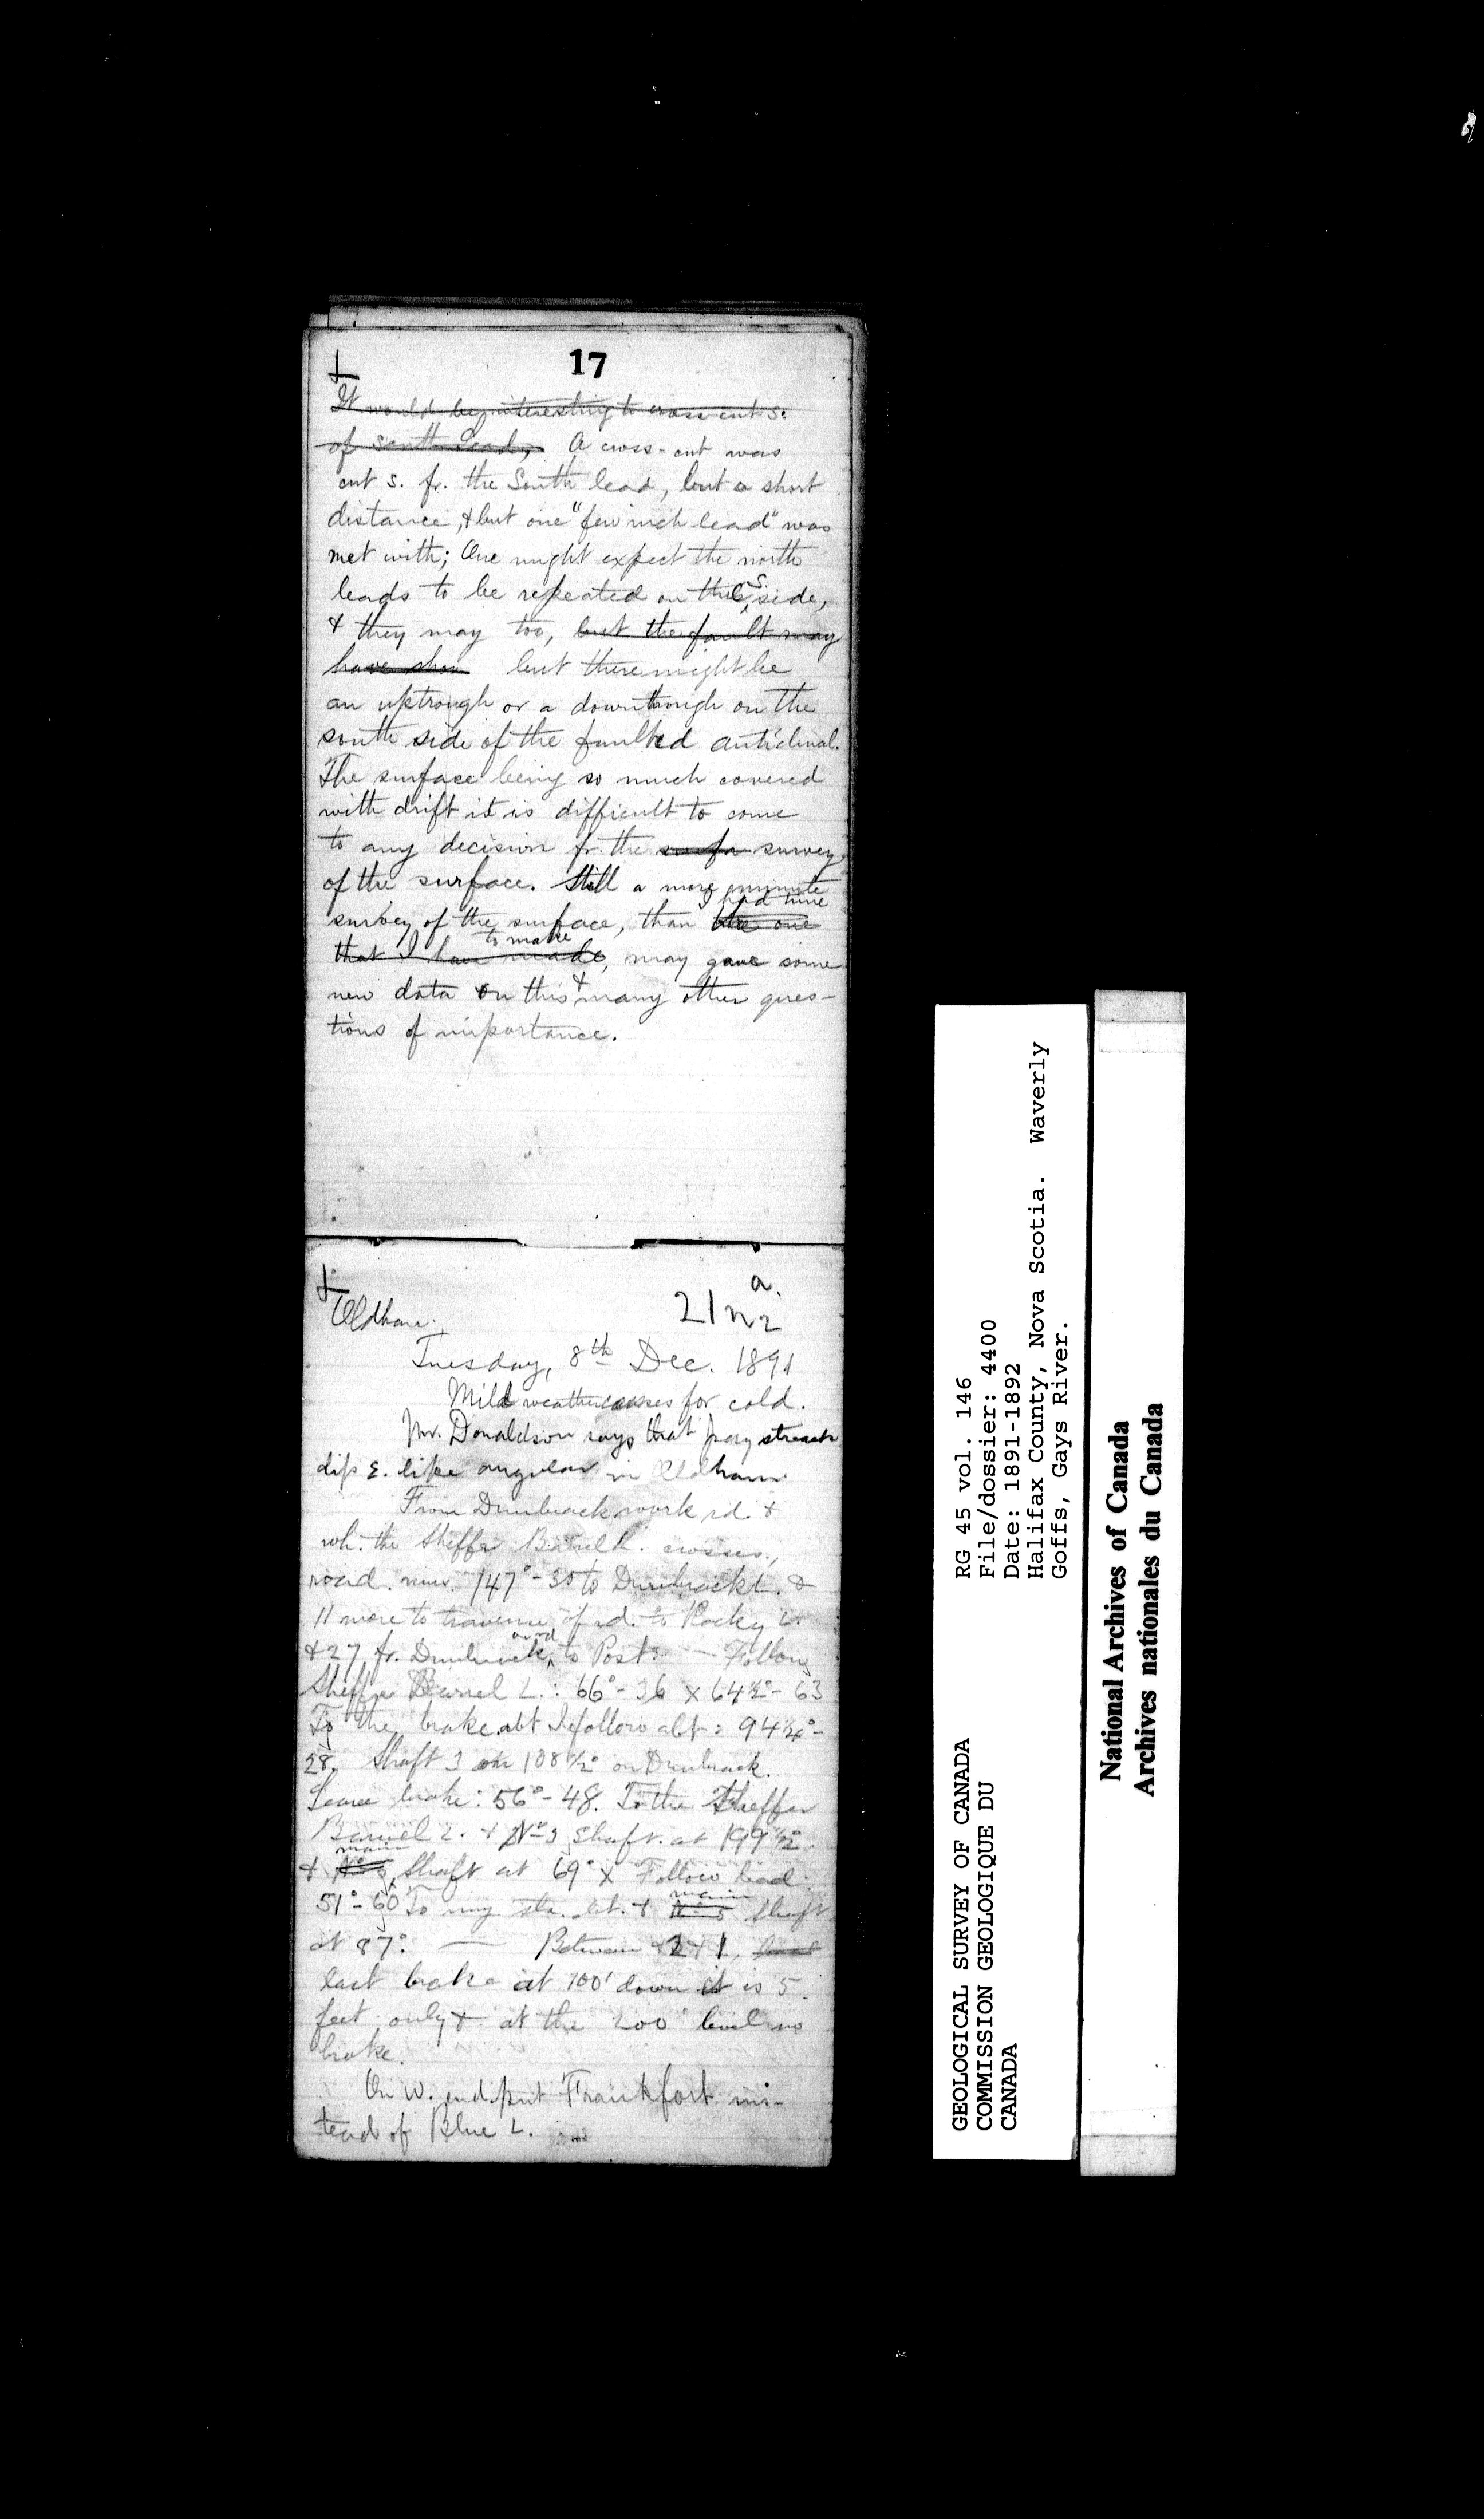 17
It would be interesting to cross cut s.
of South Lead, A cross-cut was
cut s. fr. the South lead, but a short
distance, & but one "few inch lead" was
met with; One might expect the north
leads to be repeated on the S. side,
& they may too, but the fault may
have show but there might be
an uptrough or a downthrough on the
south side of the faulted anticlinal.
The surface being so much covered
with drift it is difficult to come
to any decision fr. the surfa survey
of the surface. Still a more minute
survey of the surface, than the one I had time
that I have made, to make may gave some
new data on this & many other ques-
tions of importance.
Oldham.
21 a
Tuesday, 8th Dec. 1891
Mild weather for cold.
Mr. Donaldson says that pay streach
dip E. like angular in Oldham
From Dunbrack work rd. &
wh. the Sheffer Barrel L. crosses,
road. runs. 147°-30 to Dunbrack L. &
11 more to traverse of rd. to Rocky L.
& 27 fr. Dunbrack to Post. — Follow
Sheffer Barrel L.: 66°-36 x 64½°-63
To the brake. abt I follow abt: 94¼°-
28. Shaft 3 on 108½° on Dunbrack.
Leave brake: 56°-48. To the Sheffer
Barrel L. & No 3 Shaft. at 199½°
& main Shaft at 69° x Follow lead:
51°-60 To my sta. & main Shaft
at 87°. — Between 2 & 1,
last brake at 100' down it is 5
feet only & at the 200' level no
brake.
On W. end put Frankfort ins-
tead of Blue L.
RG 45 vol. 146
File/dossier: 4400
Date: 1891-1892
Halifax County, Nova Scotia. Waverly
Goffs, Gays River.
GEOLOGICAL SURVEY OF CANADA
COMMISSION GEOLOGIQUE DU
CANADA
National Archives of Canada
Archives nationales du Canada